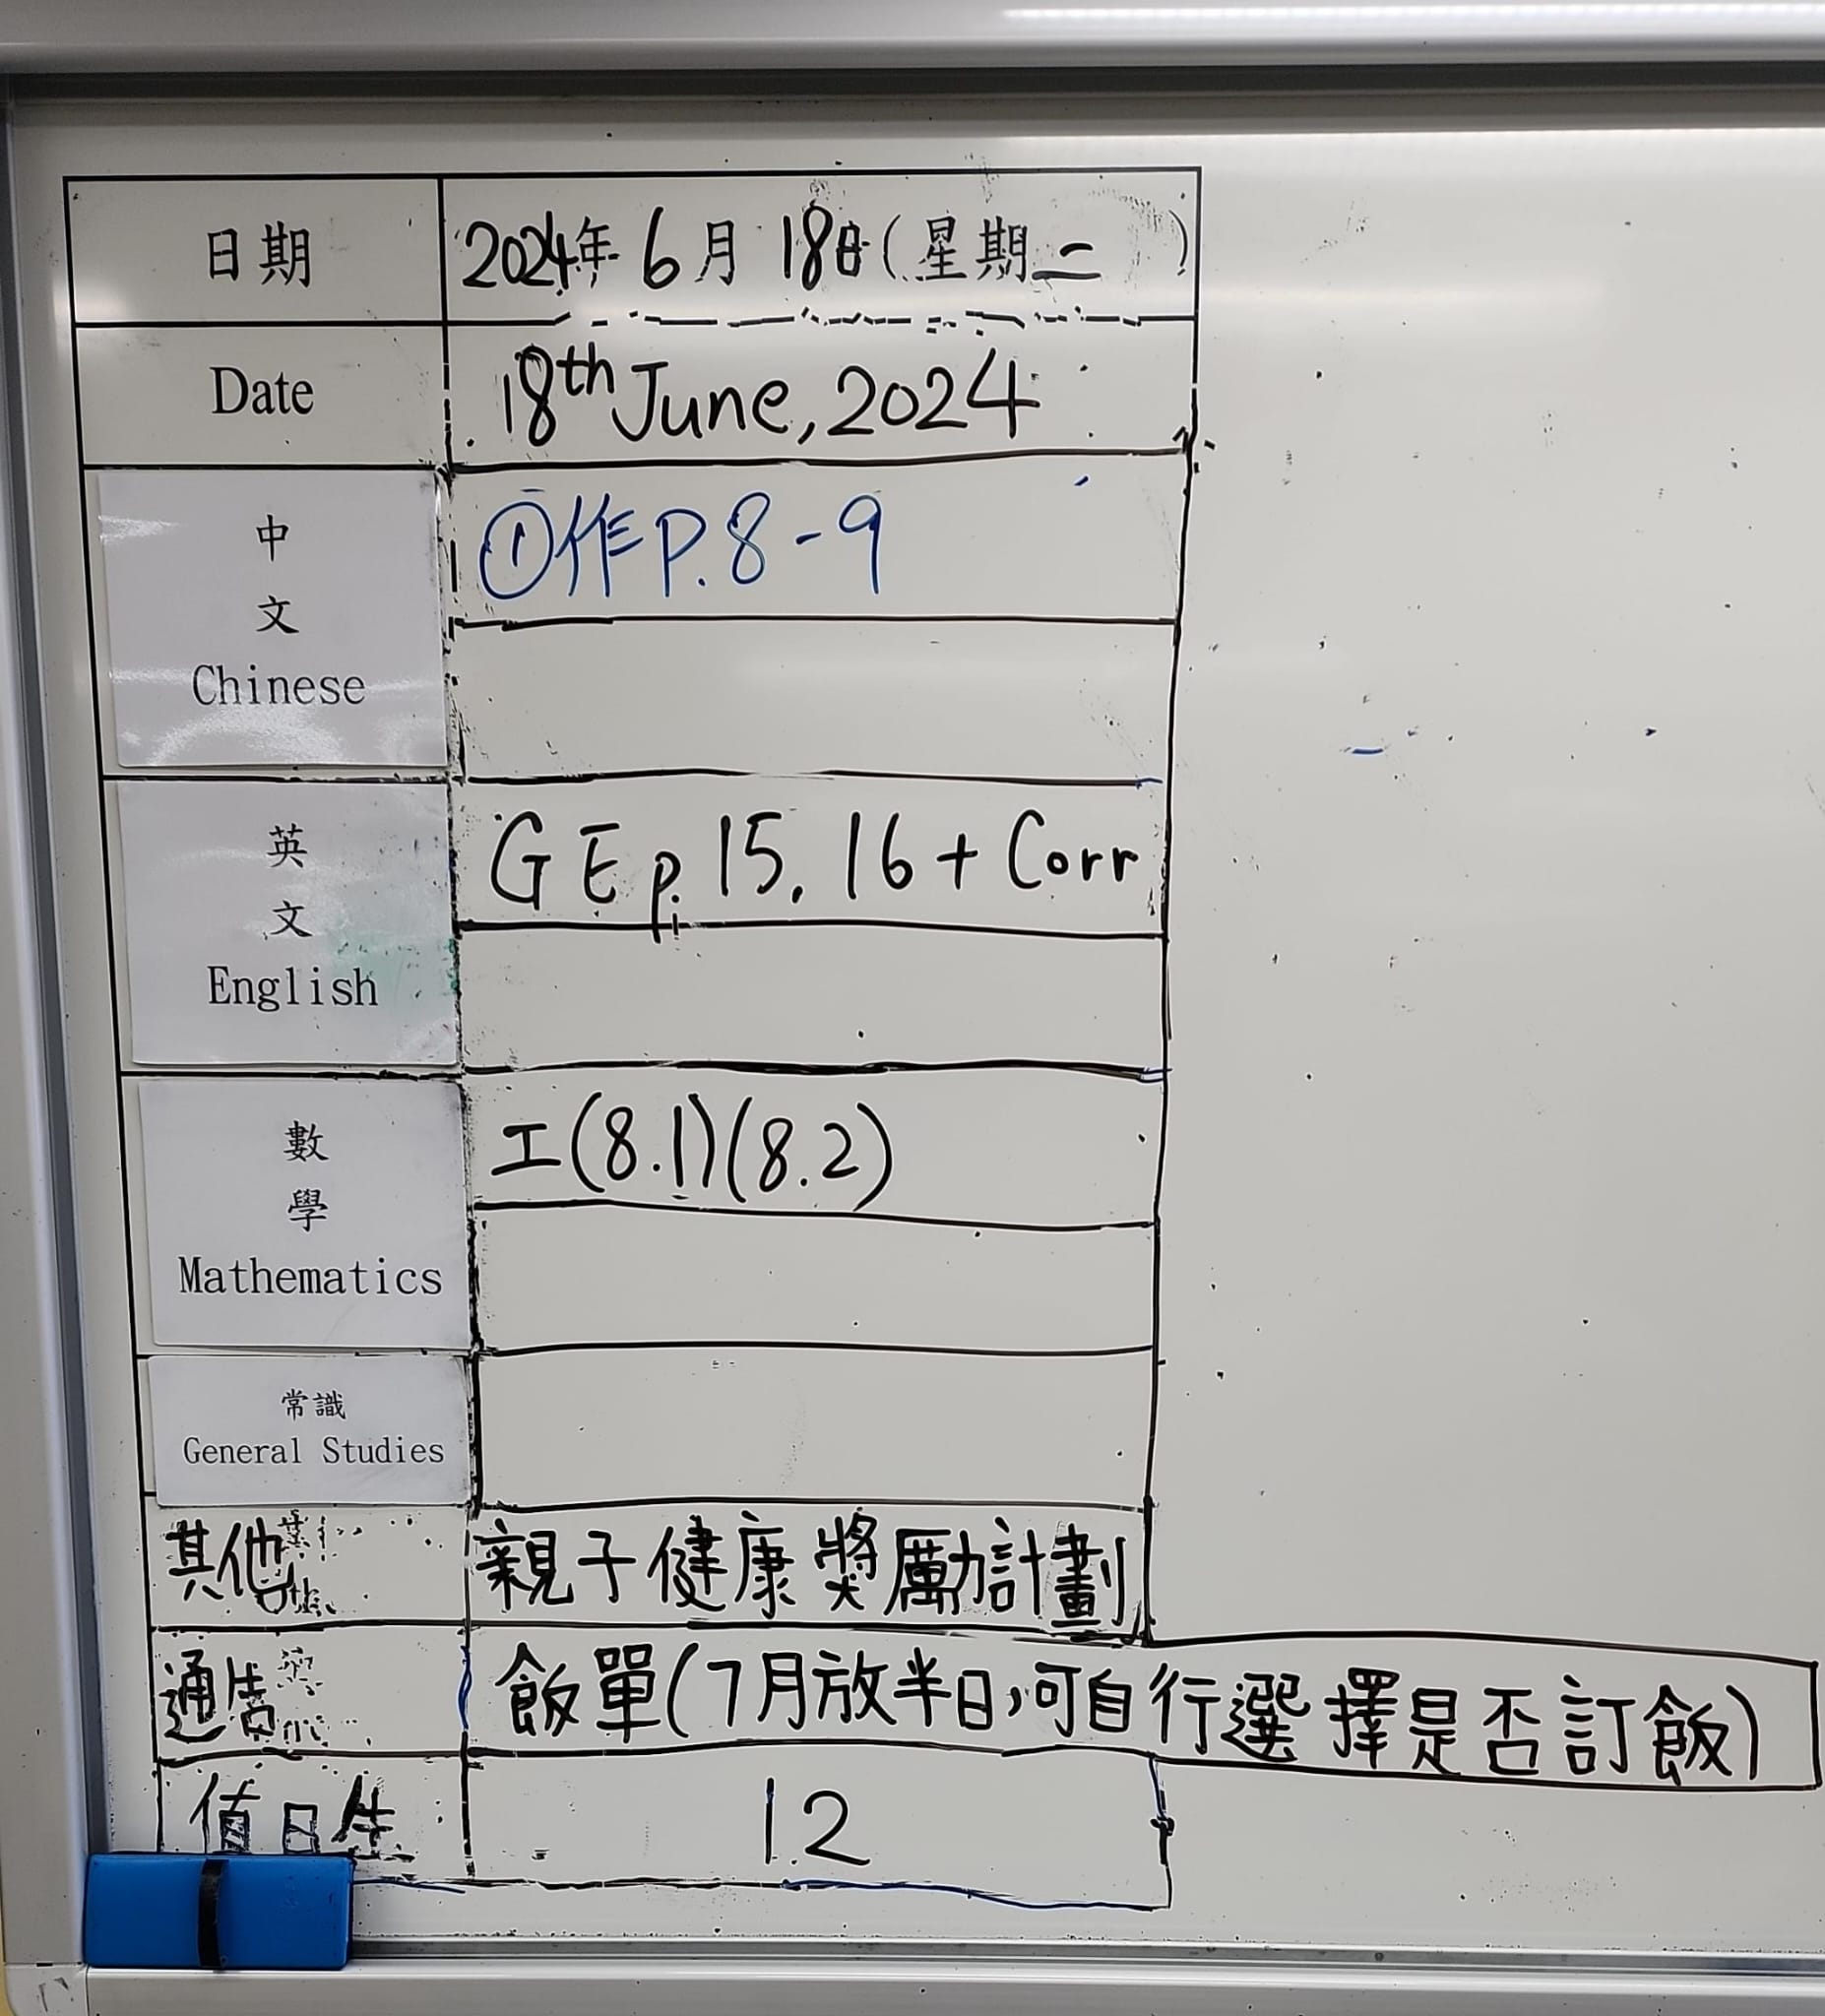 日期 2024年 6月 18日(星期二 )
Date 18th June, 2024
中文 Chinese ①作P.8-9
英文 English GE p. 15, 16 + Corr
數學 Mathematics 工(8.1)(8.2)
常識 General Studies
其他 親子健康獎勵計劃
通告 飯單(7月放半日,可自行選擇是否訂飯)
值日生 12